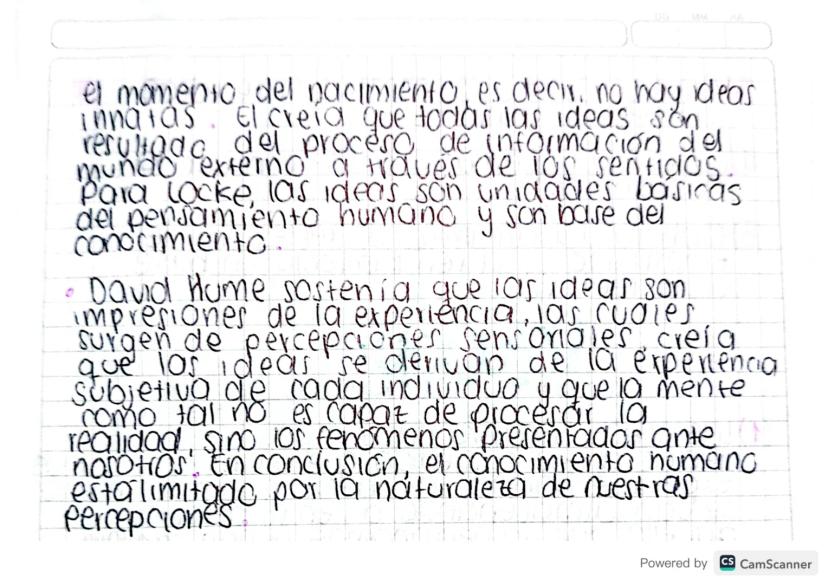 el momento del nacimiento, es decir, no hay ideas
innatas. El creía que todas las ideas son
resultado del proceso de información del
mundo externo a través de los sentidos.
Para Locke, las ideas son unidades básicas
del pensamiento humano y son base del
conocimiento.
• David Hume sostenía que las ideas son
impresiones de la experiencia, las cuales
surgen de percepciones sensoriales, creía
que las ideas se derivan de la experiencia
subjetiva de cada individuo y que la mente
como tal no es capaz de procesar la
realidad, sino los fenómenos presentados ante
nosotros. En conclusión, el conocimiento humano
esta limitado por la naturaleza de nuestras
percepciones.
Powered by CS CamScanner